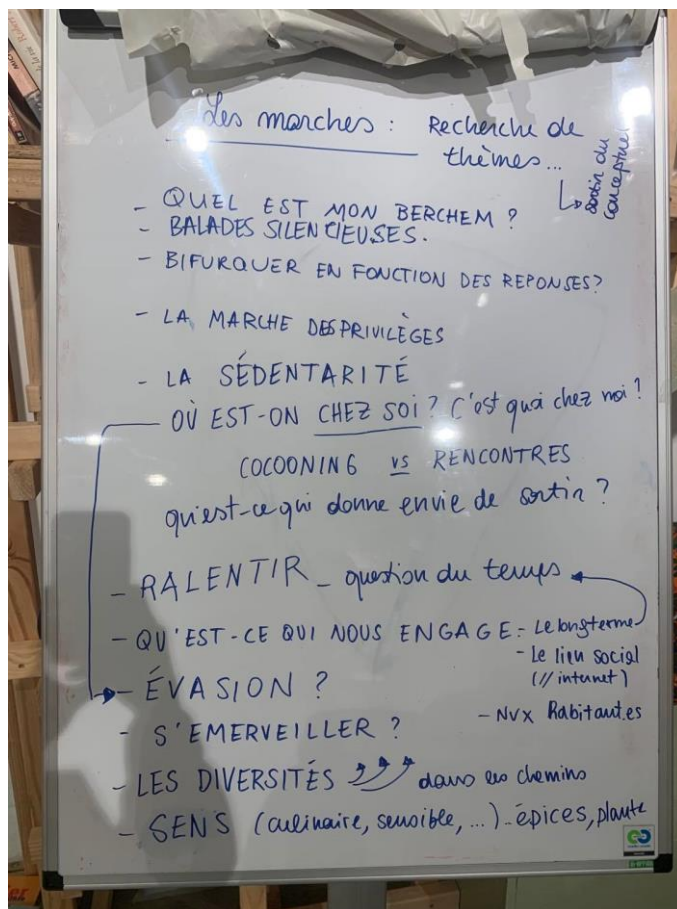 Les marches : Recherche de
thèmes...
sortir du
conceptuel
- QUEL EST MON BERCHEM ?
- BALADES SILENCIEUSES.
- BIFURQUER EN FONCTION DES REPONSES?
- LA MARCHE DES PRIVILÈGES
- LA SÉDENTARITÉ
OÙ EST-ON CHEZ SOI ? C'est quoi chez moi ?
COCOONING vs RENCONTRES
qu'est-ce qui donne envie de sortir ?
- RALENTIR - question du temps
- QU'EST-CE QUI NOUS ENGAGE : - Le long terme
- Le lien social
(// internet)
- ÉVASION ?
- NVX Habitant.es
- S'EMERVEILLER ?
- LES DIVERSITÉS dans les chemins
- SENS (culinaire, sensible, ...) - épices, plante